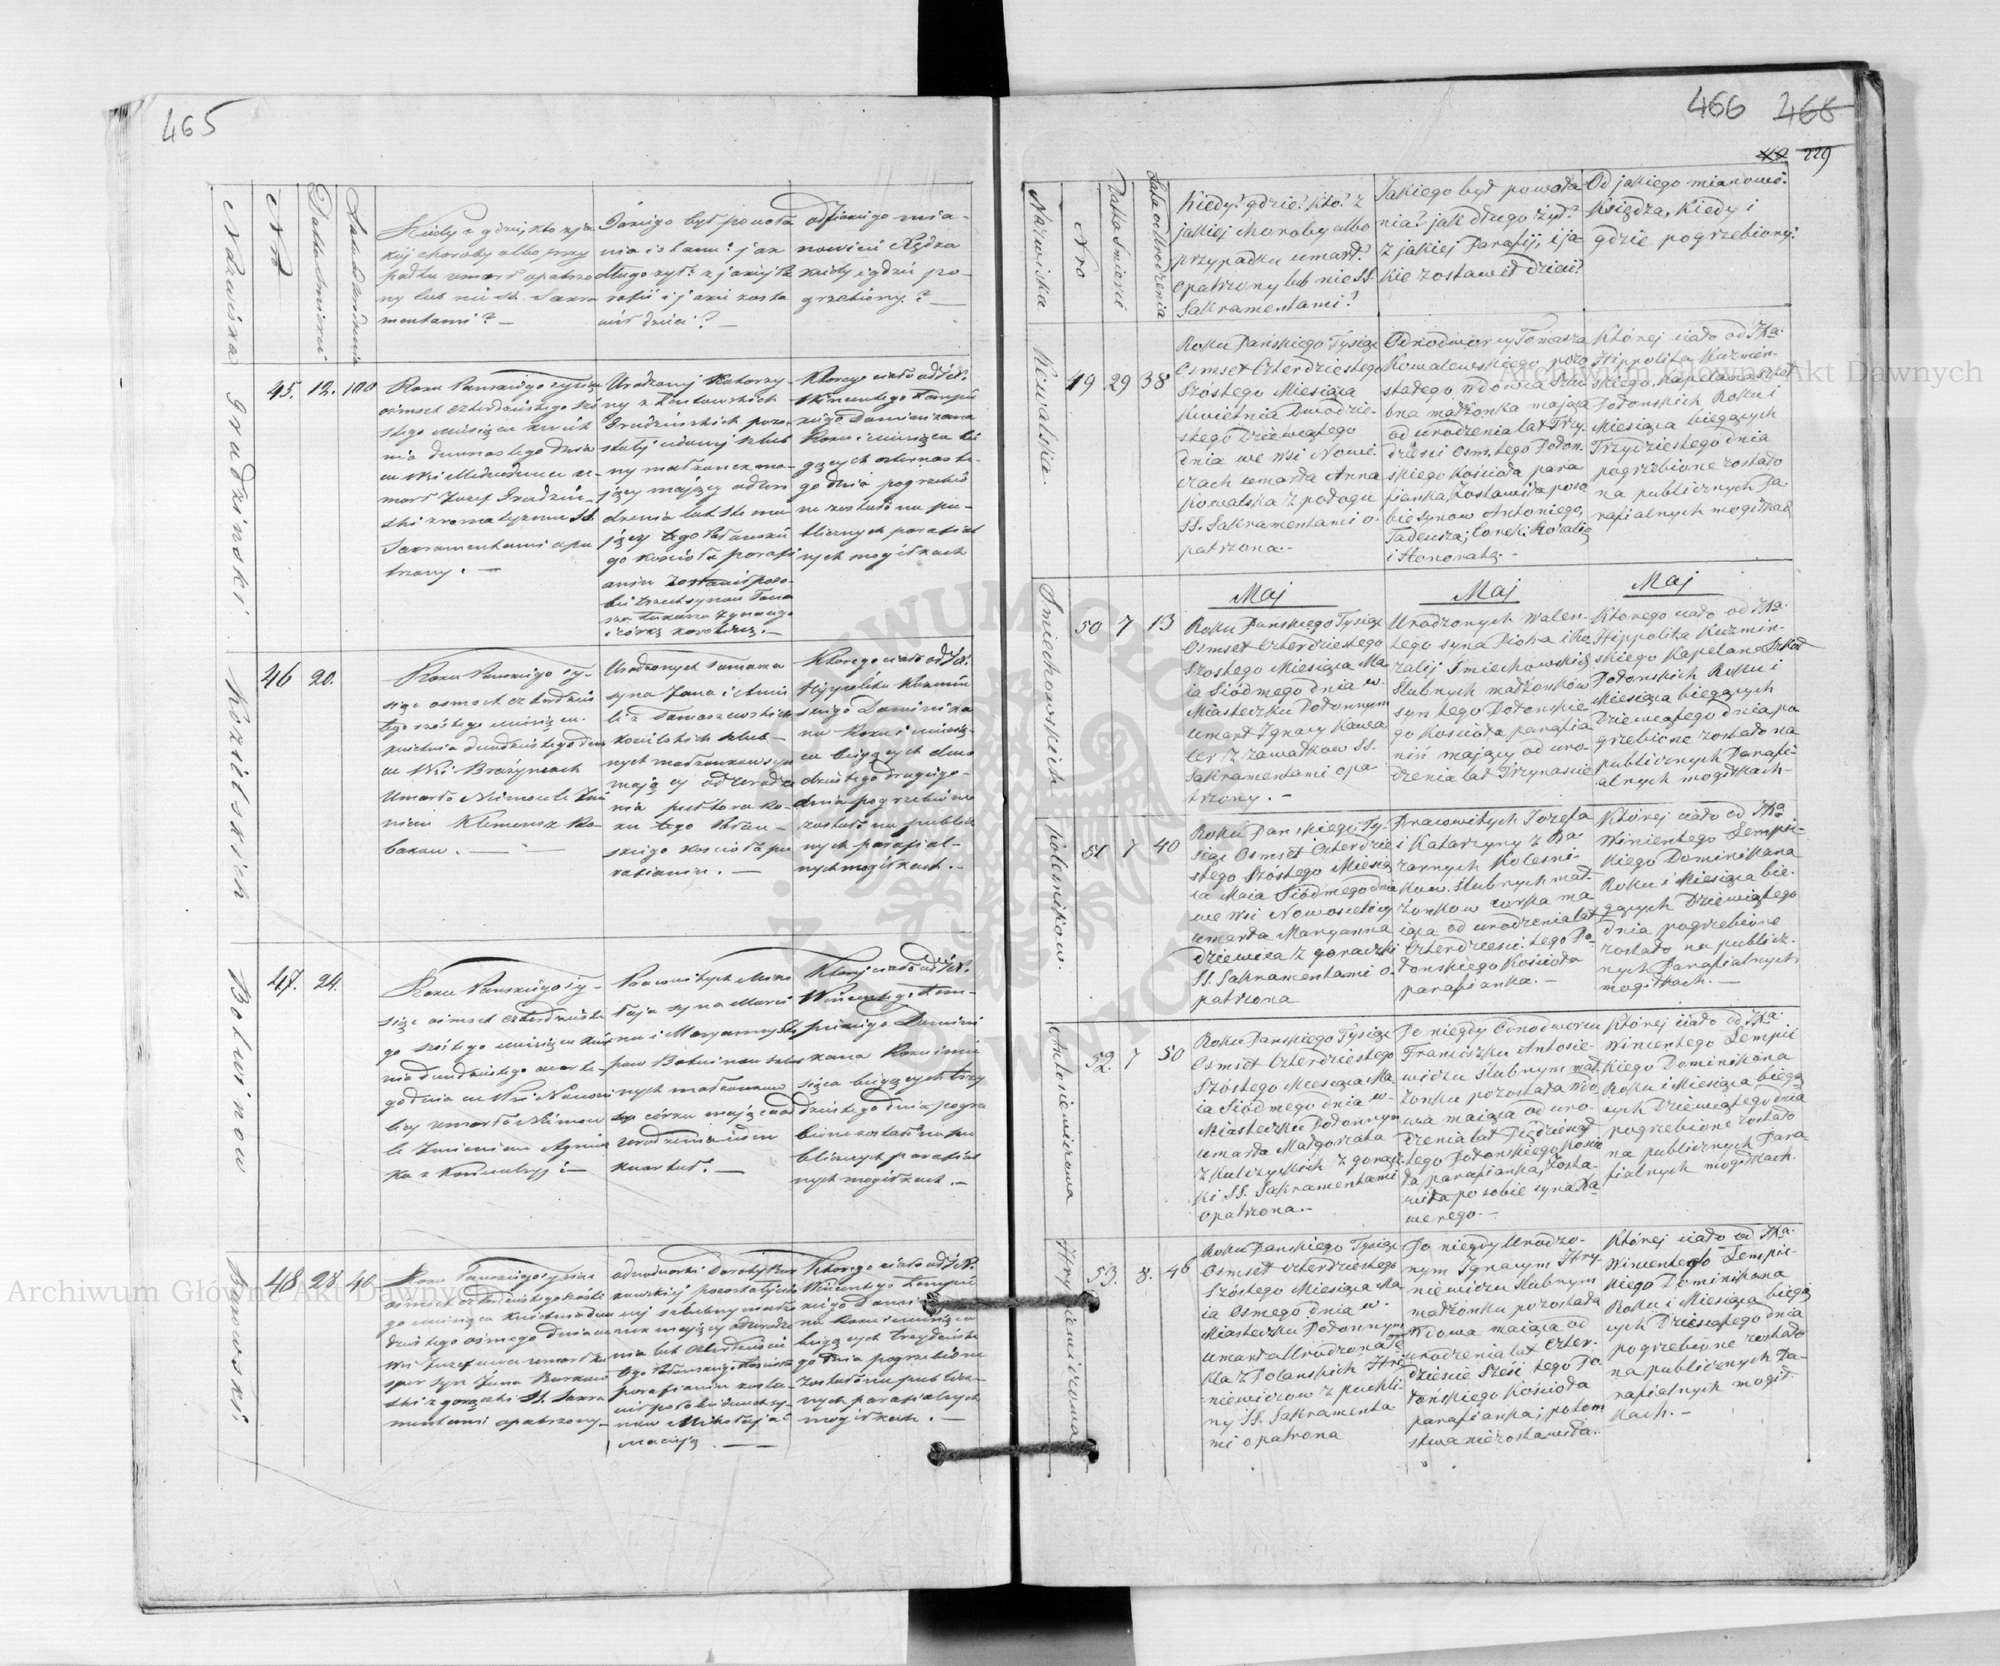 465
Nazwiska
Nr
Datta Śmierci
Kiedy? gdzie, kto z ja
kiej choroby albo przy
padku umarł opatrzo
ny lub nie SS. Sakra
mentami? —
Jakiego był powoła
nia i stanu? jak
długo żył? z jakiej Pa
rafii i jakie zosta
wił dzieci? —
od jakiego mia-
nowicie Xiędza
kiedy i gdzie po-
grzebiony? —
Grudzinski.
45. 12. 100
Roku Panskiego tysiąc
osmset czterdziestego szó
stego miesiąca kwiet
nia dwunastego dnia
we Wsi
marł Jozef Grudziń-
ski z romatyzmu SS.
Sakramentami opa
trzony. —
Urodzonej Katarzy
ny z
Grudzinskich pozo-
stały wdowiec szlub
ny małżonek ma-
jący od uro
dzenia lat sto
tego
go kościoła parafi
anin zostawił poso-
bie trzech synow Toma
sza Łukasza Ignacego
i córkę Karolinę. —
Którego ciało od JX.
Wincentego Lempic
kiego Dominikana
Roku i miesiąca bie
gących czternaste-
go dnia pogrzebio
ne zostało na pu-
blicznych parafial
nych mogiłkach
Kozielskich
46 20.
Roku Panskiego ty-
siąc osmset czterdzies
tego szóstego miesiąca
kwietnia dwudziestego dnia
we Wsi Brażyncach
Umarło Niemowle Imie
niem Klemens z Ko-
kaszu. —
Urodzonych Tomasza
syna Jana i Anie
li z Tomaszewskich
Kozielskich szlub-
nych małżonkow syn
mający od urodze
nia puł tora ro-
ku tego
skiego kościoła pa
rafianin. —
Którego ciało od JX.
Hippolita Kuzmin
skiego Dominika
na Roku i miesią-
ca bieżących dwu
dziestego drugiego
dnia pogrzebione
zostało na publicz
nych parafial-
nych mogiłkach. —
Bołwinow
47. 24.
Roku Panskiego ty-
siąc osmset czterdzieste
go szóstego miesiąca kwiet
nia dwudziestego czwarte
go dnia we Wsi Nowosie
licy umarło Niemow
le Imieniem Agniesz
ka z konwulsyj. —
Pracowitych Miko
łaja syna Marci
na i Maryanny
Bołwinow szlub
nych małżonkow
córka mająca od
urodzenia jeden
kwartał. —
Której ciało od JX.
Wincentego Lem-
pickiego Domini
kana Roku i mie
siąca bieżących trzy
dziestego dnia pogrze
bione zostało na pu
blicznych parafial
nych mogiłkach. —
Burkowski.
48 28 40
Roku Panskiego tysiąc
osmset czterdziestego szóste
go miesiąca kwietnia dwu
dziestego osmego dnia we
Wsi Juzefowce umarł Ka
sper syn Jana Burkow
ski z gorączki SS. Sakra
mentami opatrzony. —
odnodworki Doroty Bur
kowskiej pozostałej wdo
wej szlubny małżo
nek mający od urodze
nia lat czterdzieści
tego kościoła
parafianin zosta-
wił po sobie dwuch sy-
now Mikołaja i
Macieja. —
Którego ciało od JX.
Wincentego Lempic
kiego Dominika
na Roku i miesiąca
bieżących trzydzieste
go dnia pogrzebione
zostało na publicz-
nych parafialnych
mogiłkach. —
466 466
229
Nazwiska
Nro
Datta Śmierci
Lata od Urodzenia
Kiedy? gdzie? kto? z
jakiej choroby albo
przypadku umarł?
opatrzony lub nie SS.
Sakramentami?
Jakiego był powoła
nia? jak długo żył?
z jakiej Parafij, i ja
kie zostawił dzieci?
Od jakiego mianowi-
Księdza, kiedy i
gdzie pogrzebiony?
Kowalska.
49 29 38
Roku Pańskiego Tysiąc
Osmset Czterdziestego
Szóstego Miesiąca
Kwietnia Dwudzie-
stego Dziewiątego
dnia we wsi Nowi-
cach umarła Anna
Kowalska z połogu
SS. Sakramentami o-
patrzona. —
Odnodworcy Tomasza
Kowalewskiego pozo
stałego wdowca szlu
bna małżonka mająca
od urodzenia lat Trzy
dzieści Osm, tego Połon-
skiego kościoła para
fianka, zostawiła poso
bie synow Antoniego,
Tadeusza; Corek: Rozalię
i Honoratę. —
Której ciało od JXa.
Hippolita Kuzmin-
skiego, Kapelana szkół
Połonskich Roku i
Miesiąca bieżących
Trzydziestego dnia
pogrzebione zostało
na publicznych Pa-
rafialnych mogiłkach
Smiechowskich
Maj
Maj
Maj
50 7 13
Roku Pańskiego Tysiąc
Osmset Czterdziestego
Szóstego Miesiąca Ma
ia Siódmego dnia w
Miasteczku Połonnym
umarł Ignacy kawa
ler z zawałkow SS.
Sakramentami opa
trzony. —
Urodzonych Walen-
tego syna Piotra i Ro
zalij Smiechowskich
Slubnych małżonków
syn tego Połonskie
go kościoła parafia
nin mający od uro-
dzenia lat Trzynaście
Ktorego ciało od JXa.
Hippolita Kuzmin-
skiego Kapelana Szkół
Połonskich Roku i
Miesiąca bieżących
Dziewiątego dnia po
grzebione zostało na
publicznych Parafi-
alnych mogiłkach —
Kolesnikow.
51 7 40
Roku Pańskiego Ty-
siąc Osmset Czterdzie
stego Szóstego Miesią
ca Maia Siódmego dnia
we wsi Nowosielicy
umarła Maryanna
dziewica z gorączki
SS. Sakramentami o-
patrzona
Pracowitych Jozefa
i Katarzyny z Ba-
żarnych Kolesni-
kow. Slubnych mał-
żonkow corka ma
iąca od urodzenia lat
czterdzieści, tego Po-
łonskiego Kościoła
parafianka. —
Której ciało od JXa
Wincentego Lempic-
kiego Dominikana
Roku i Miesiąca bie-
gących Dziewiątego
dnia pogrzebione
zostało na publicz-
nych Parafialnych
mogiłkach. —
Antosiewiczowa
52. 7 50
Roku Pańskiego Tysiąc
Osmset Czterdziestego
Szóstego Miesiąca Ma
ia Siódmego dnia w-
Miasteczku Połonnym
umarła Małgorzata
z Kulczyckich z gorącz-
ki SS. Sakramentami
opatrzona. —
Po niegdy Odnodworcu
Franciszku Antosie-
wiczu slubnym mał-
żonku pozostała wdo
wa maiąca od uro-
dzenia lat Pięćdziesiąt
tego Połonskiego kościo
ła parafianka, Zosta-
wiła po sobie syna Xa
werego. —
Której ciało od JXa.
Wincentego Lempic
kiego Dominikana
Roku i Miesiąca bieżą-
cych Dziewiątego dnia
pogrzebione zostało
na publicznych Para-
fialnych mogiłkach.
Hryniewiczowa
53. 8. 46
Roku Pańskiego Tysiąc
Osmset czterdziestego
Szóstego Miesiąca Ma
ia Osmego dnia w-
Miasteczku Połonnym
umarła Urodzona
kla z Polanskich Hry
niewiczow z puchli-
ny SS. Sakramenta
mi opatrona
Po niegdy Urodzo-
nym Ignacym Hry-
niewiczu slubnym
małżonku pozostała
Wdowa maiąca od
urodzenia lat czter-
dzieście Sześć tego Po
łońskiego Kościoła
parafianka; potom
stwa niezostawiła. —
Której ciało od JXa.
Wincentego Lempic-
kiego Dominikana
Roku i Miesiąca bieżą
cych Dziesiątego dnia
pogrzebione zostało
na publicznych Pa-
rafialnych mogił-
kach. —
Archiwum Główne Akt Dawnych
Archiwum Główne Akt Dawnych
ARCHIWUM GŁÓWNE AKT DAWNYCH